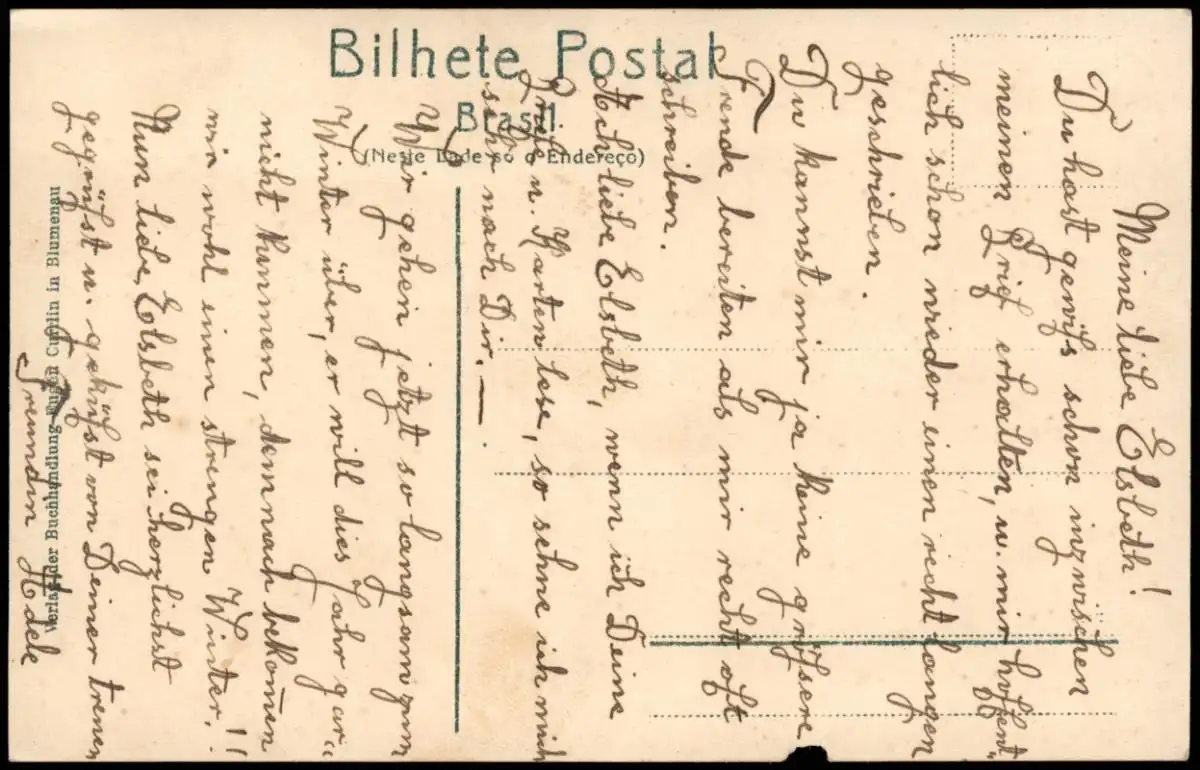 Bilhete Postal
Brasil.
(Neste lade só o Endereço)
Verlag der Buchhandlung Eugen Currlin in Blumenau
Meine liebe Elsbeth!
Du hast gewiß schon inzwischen
meinen Brief erhalten, u. mir hoffent"
lich schon wieder einen recht langen
geschrieben.
Du kannst mir ja keine größere
Freude bereiten als mir recht oft
schreiben.
Ach liebe Elsbeth, wenn ich Deine
Briefe u. Karten lese, so sehne ich mich
sehr nach Dir. —
Wir gehen jetzt so langsam zum
Winter über, er will dies Jahr gar"
nicht kummen, demnach bekom̄en
wir wohl einen strengen Winter.!!
Nun liebe, Elsbeth sei herzlichst
gegrüßt u. geküßt von Deiner treuen
Freundin Adele